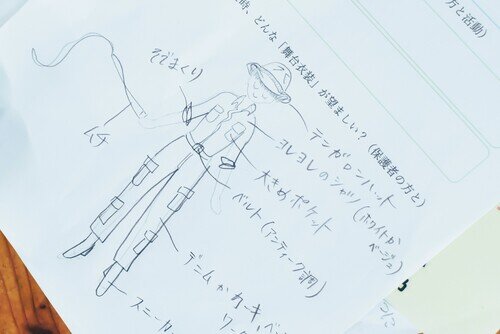 方と活動)
時、どんな「舞台衣装」が望ましい?(保護者の方と)
そでまくり
ムチ
テンガロンハット
ヨレヨレのシャツ(ホワイトか
ベージュ)
大きめポケット
ベルト(アンティーク調)
デニムかカーキ、ベ
ワー
スニーカー